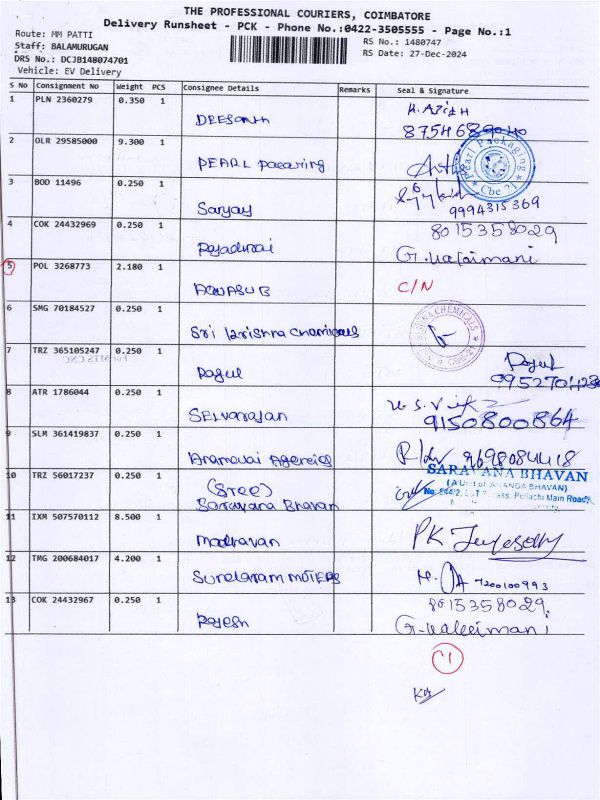 THE PROFESSIONAL COURIERS, COIMBATORE
Delivery Runsheet - PCK - Phone No.:0422-3505555 - Page No.:1
Route: MM PATTI
RS No.: 1480747
Staff: BALAMURUGAN
RS Date: 27-Dec-2024
DRS No.: DCJB148074701
Vehicle: EV Delivery
S No Consignment No Weight PCS Consignee Details Remarks Seal & Signature
1 PLN 2360279 0.350 1
DEESANTH
2 OLR 29585000 9.300 1
PEARL pacaring
Pearl Packaging
Cbe-21
3 BOD 11496 0.250 1
Sanjay
9994315369
4 COK 24432969 0.250 1 8015358029
Rajadurai G. Kalaimani
5 POL 3268773 2.180 1
AQUASUB C/N
6 SMG 70184527 0.250 1
Sri Krishna Chemicals
CHEMICALS
CBE-21
7 TRZ 365105247 0.250 1
Ragul Ragul
8 ATR 1786044 0.250 1
SELVARAJAN 9150800864
9 SLM 361419837 0.250 1
Anamalai Agencies 9698084418
10 TRZ 56017237 0.250 1
(Sree)
Saravana Bhavan
SARAVANA BHAVAN
(A Unit of ANANDA BHAVAN)
No. Pollachi Main Road
11 IXM 507570112 8.500 1
madhavan PK
12 TMG 200684017 4.200 1
Sundaram MOTERS 7200100993
13 COK 24432967 0.250 1 8015358029
Rajesh G. Kalaimani